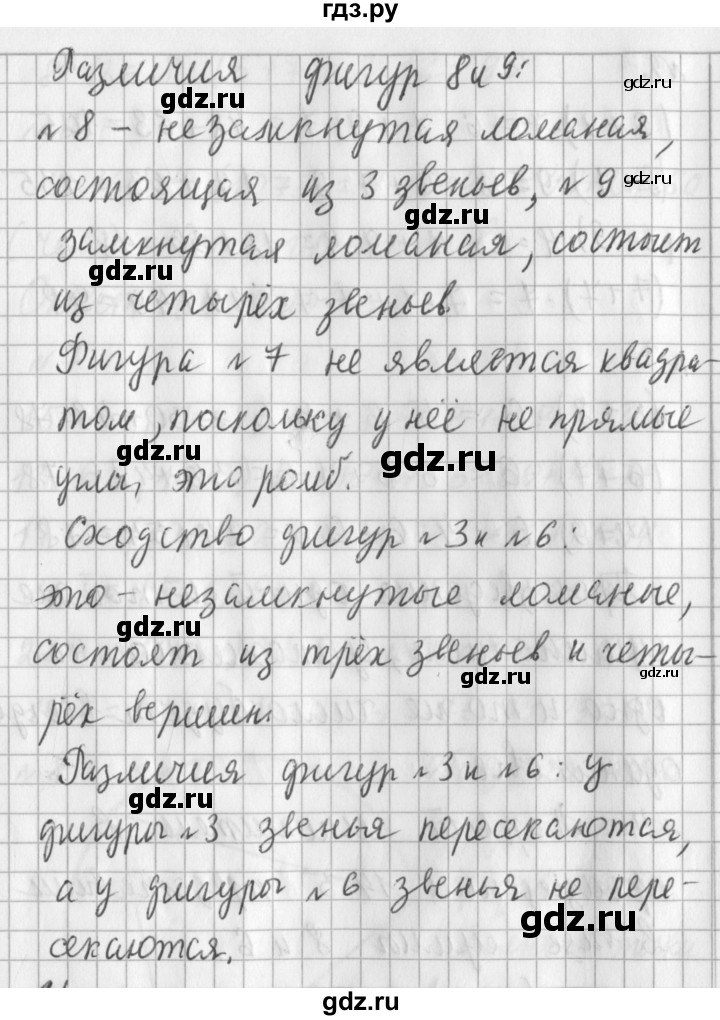 гдз.ру
Различия фигур 8 и 9:
gdz.ru
gdz.ru
№ 8 - незамкнутая ломаная,
состоящая из 3 звеньев, № 9
gdz.ru
gdz.ru
замкнутая ломаная, состоит
gdz.ru
из четырёх звеньев.
gdz.ru
Фигура № 7 не является квадра-
том, поскольку у неё не прямые
gdz.ru
gdz.ru
углы, это ромб.
Сходство фигур № 3 и № 6:
gdz.ru
это - незамкнутые ломаные,
gdz.ru
состоят из трёх звеньев и четы-
gdz.ru
gdz.ru
рёх вершин.
Различия фигур № 3 и № 6: у
gdz.ru
фигуры № 3 звенья пересекаются,
а у фигуры № 6 звенья не пере-
gdz.ru
секаются.
gdz.ru
gdz.ru